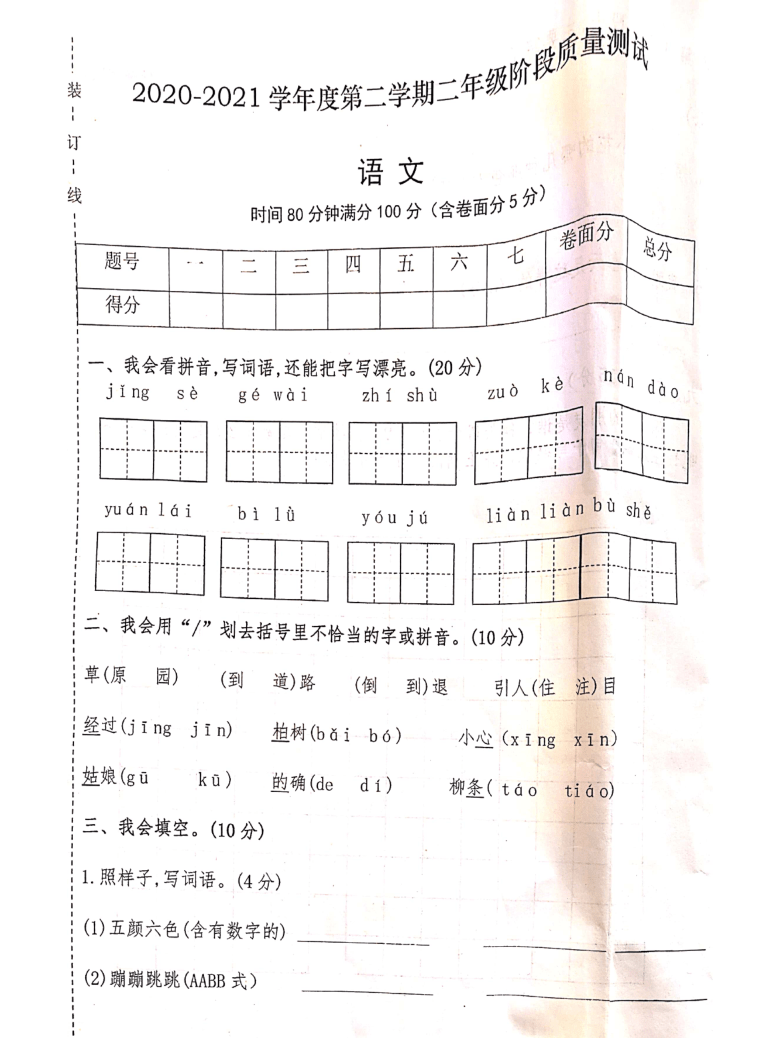 装
订
线
2020-2021学年度第二学期二年级阶段质量测试
语文
时间80分钟满分100分(含卷面分5分)
题号 一 二 三 四 五 六 七 卷面分 总分
得分
一、我会看拼音,写词语,还能把字写漂亮。(20分)
jǐng sè gé wài zhí shù zuò kè nán dào
yuán lái bì lǜ yóu jú liàn liàn bù shě
二、我会用“/”划去括号里不恰当的字或拼音。(10分)
草(原 园) (到 道)路 (倒 到)退 引人(住 注)目
经过(jīng jīn) 柏树(bǎi bó) 小心(xīng xīn)
姑娘(gū kū) 的确(de dí) 柳条(táo tiáo)
三、我会填空。(10分)
1.照样子,写词语。(4分)
(1)五颜六色(含有数字的)
(2)蹦蹦跳跳(AABB式)